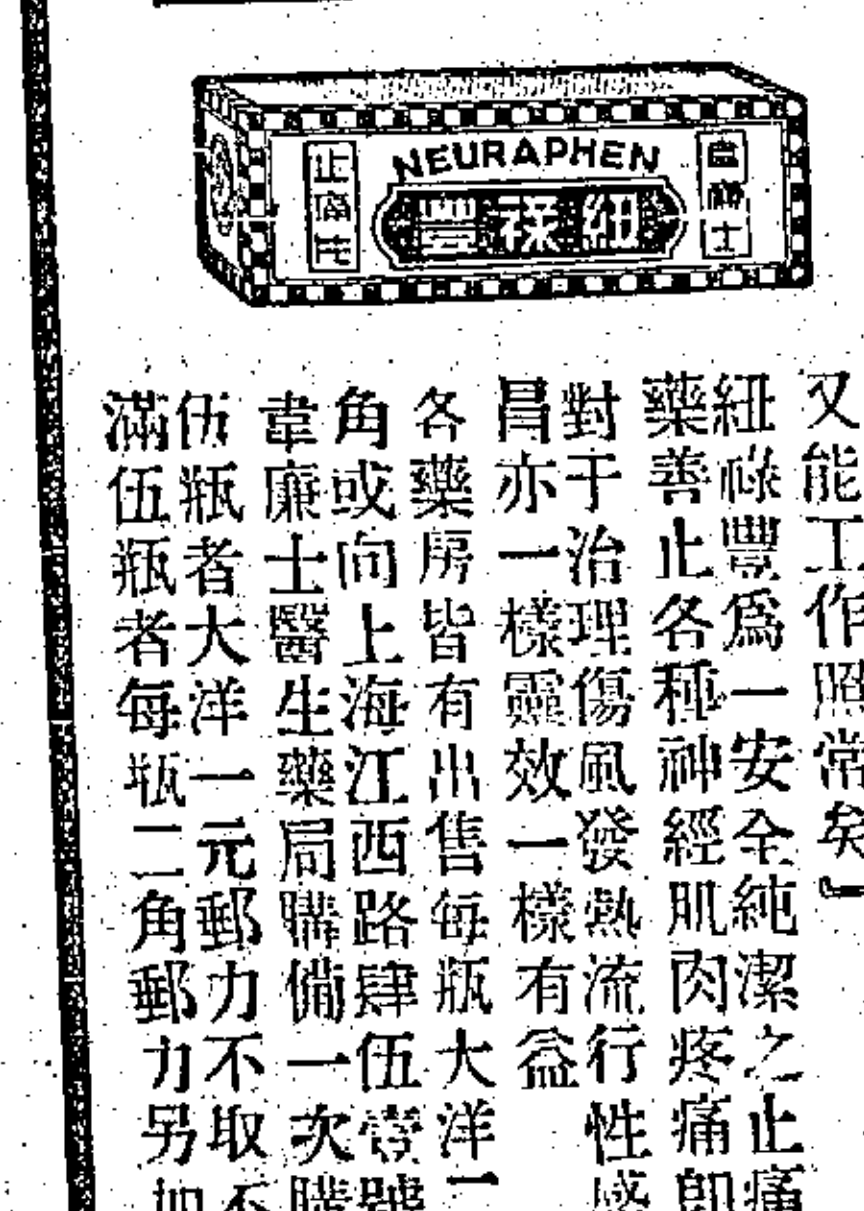 NEURAPHEN
紐祿豐
韋廉士
止痛片
又能工作照常矣』
紐祿豐爲一安全純潔之止痛
藥善止各種神經肌肉疼痛卽
對于治理傷風發熱流行性感
昌亦一樣靈效一樣有益
各藥房皆有出售每瓶大洋二
角或向上海江西路肆伍壹號
韋廉士醫生藥局購備一次購
伍瓶者大洋一元郵力不取不
滿伍瓶者每瓶二角郵力另加